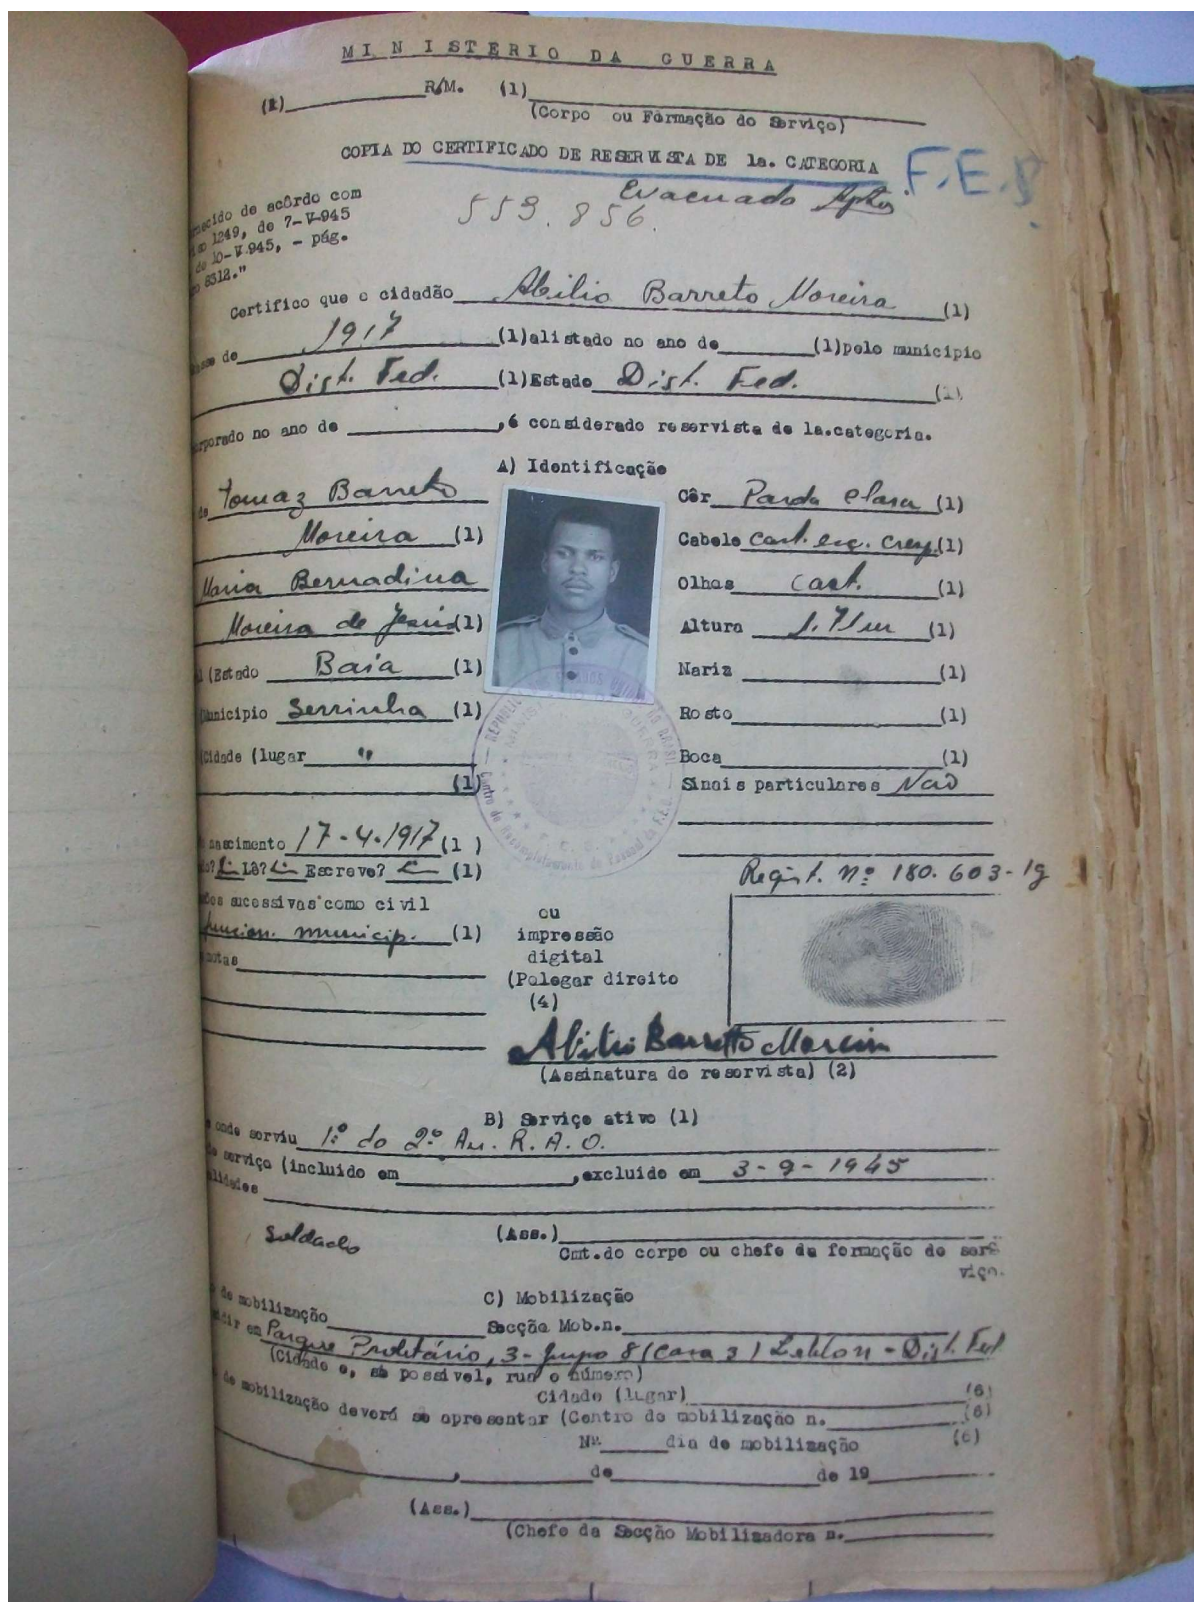 MINISTERIO DA GUERRA
(1) R/M. (1)
(Corpo ou Formação do Serviço)
COPIA DO CERTIFICADO DE RESERVISTA DE 1a. CATEGORIA F.E.B
Evacuado
553.856.
necido de acôrdo com
1249, de 7-V-945
de 10-V-945, - pág.
8312."
Certifico que o cidadão Abilio Barreto Moreira (1)
de 1917 (1)alistado no ano de (1)pelo município
Dist. Fed. (1)Estado Dist. Fed. (1)
orporado no ano de ,é considerado reservista de 1a.categoria.
A) Identificação
de Tomaz Barreto
Moreira (1)
Maria Bernadina
Moreira de Jesus (1)
(Estado Baia (1)
Município Serrinha (1)
Cidade (lugar " 
(1)
Côr Parda clara (1)
Cabelo cast. esc. cresp. (1)
Olhos cast. (1)
Altura 1.71m (1)
Nariz (1)
Rosto (1)
Boca (1)
Sinais particulares Não
REPUBLICA DOS ESTADOS UNIDOS DO BRASIL
MINISTERIO DA GUERRA
Centro de Recompletamento de Pessoal da F.E.B.
nascimento 17-4-1917 (1)
Lê? Escreve? (1)
ões sucessivas como civil
funcion. municip. (1)
notas
Regist. Nº 180.603-1g
ou
impressão
digital
(Polegar direito
(4)
Abilio Barretto Moreira
(Assinatura do reservista) (2)
B) Serviço ativo (1)
onde serviu 1º do 2º Au. R. A. O.
de serviço (incluido em ,excluido em 3-9-1945
alidades
Soldado
(Ass.)
Cmt.do corpo ou chefe da formação de ser
viço.
C) Mobilização
de mobilização Secção Mob.n.
dir em Parque Proletário, 3-grupo 8 (Casa 3) Leblon - Dist. Fed
(Cidade e, se possivel, rua e número)
Cidade (lugar) (6)
de mobilização deverá se apresentar (Centro de mobilização n. (6)
Nº. dia de mobilização (6)
, de de 19
(Ass.)
(Chefe da Secção Mobilizadora n.